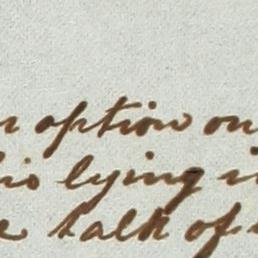 option on
lying in
talk of